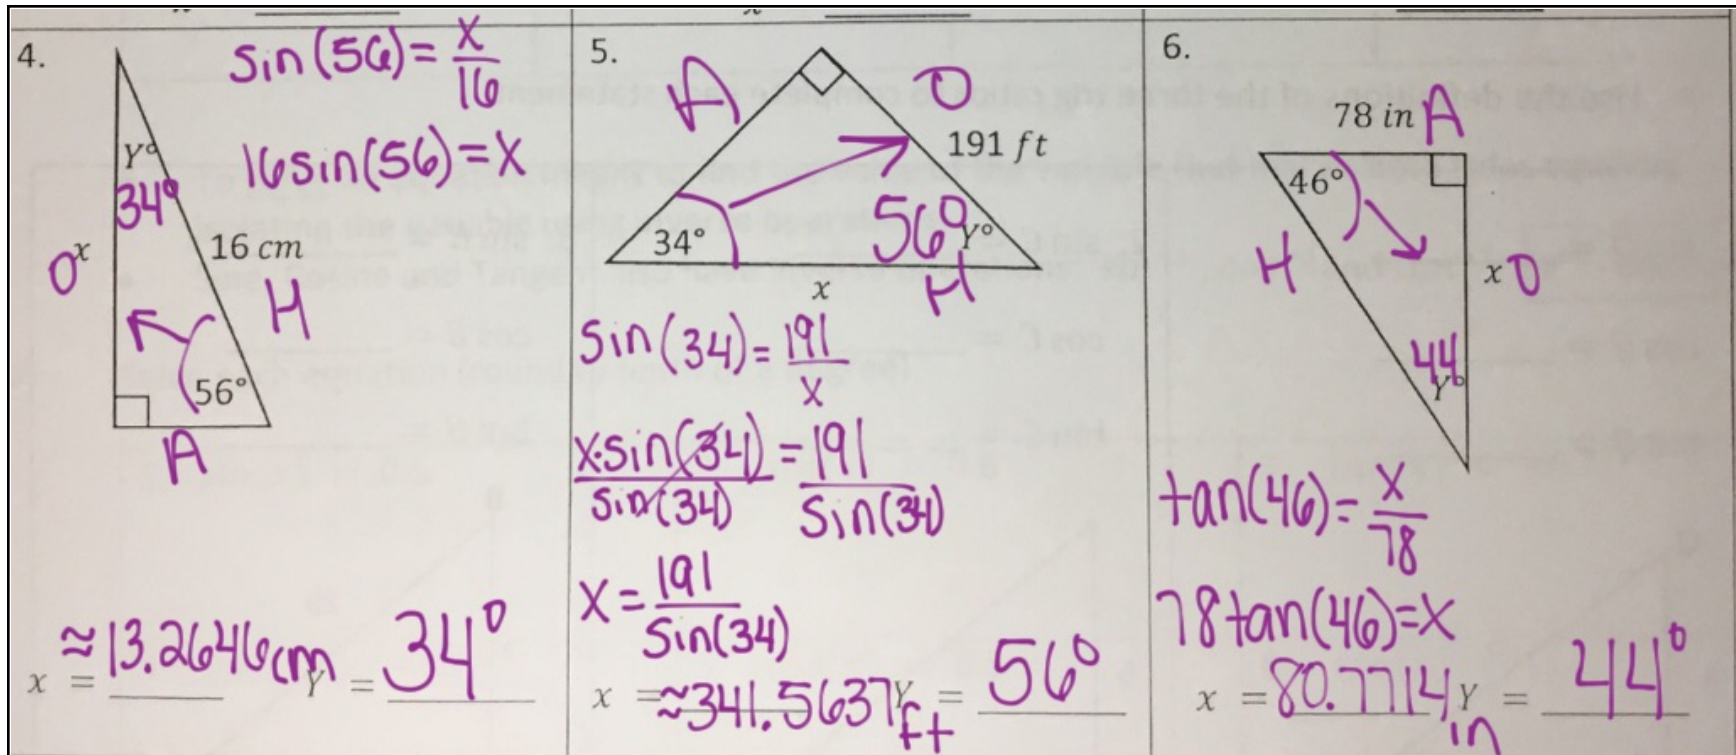 4.
sin(56) = x/16
16sin(56) = x
Y°
34°
x
O
16 cm
H
56°
A
x = ≈13.2646cm Y = 34°
5.
A
O
191 ft
34°
56°
Y°
x
H
Sin(34) = 191/x
x·sin(34)/sin(34) = 191/Sin(34)
x = 191/Sin(34)
x = ≈341.5637 ft Y = 56°
6.
78 in
A
46°
H
x
O
44
Y°
tan(46) = x/78
78tan(46) = x
x = 80.7714 in Y = 44°